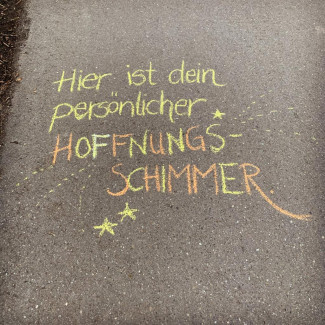 Hier ist dein
persönlicher
HOFFNUNGS-
SCHIMMER